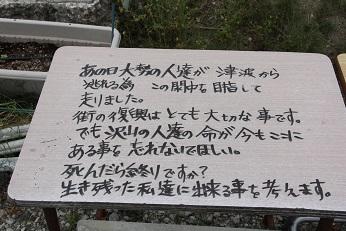 あの日大勢の人達が 津波から
逃れる為 この門を目指して
走りました。
街の復興は とても 大切な 事です。
でも 沢山の人達の命が今もここに
ある事を 忘れないでほしい。
死んだら終りですか?
生き残った私達に出来る事を 考えます。